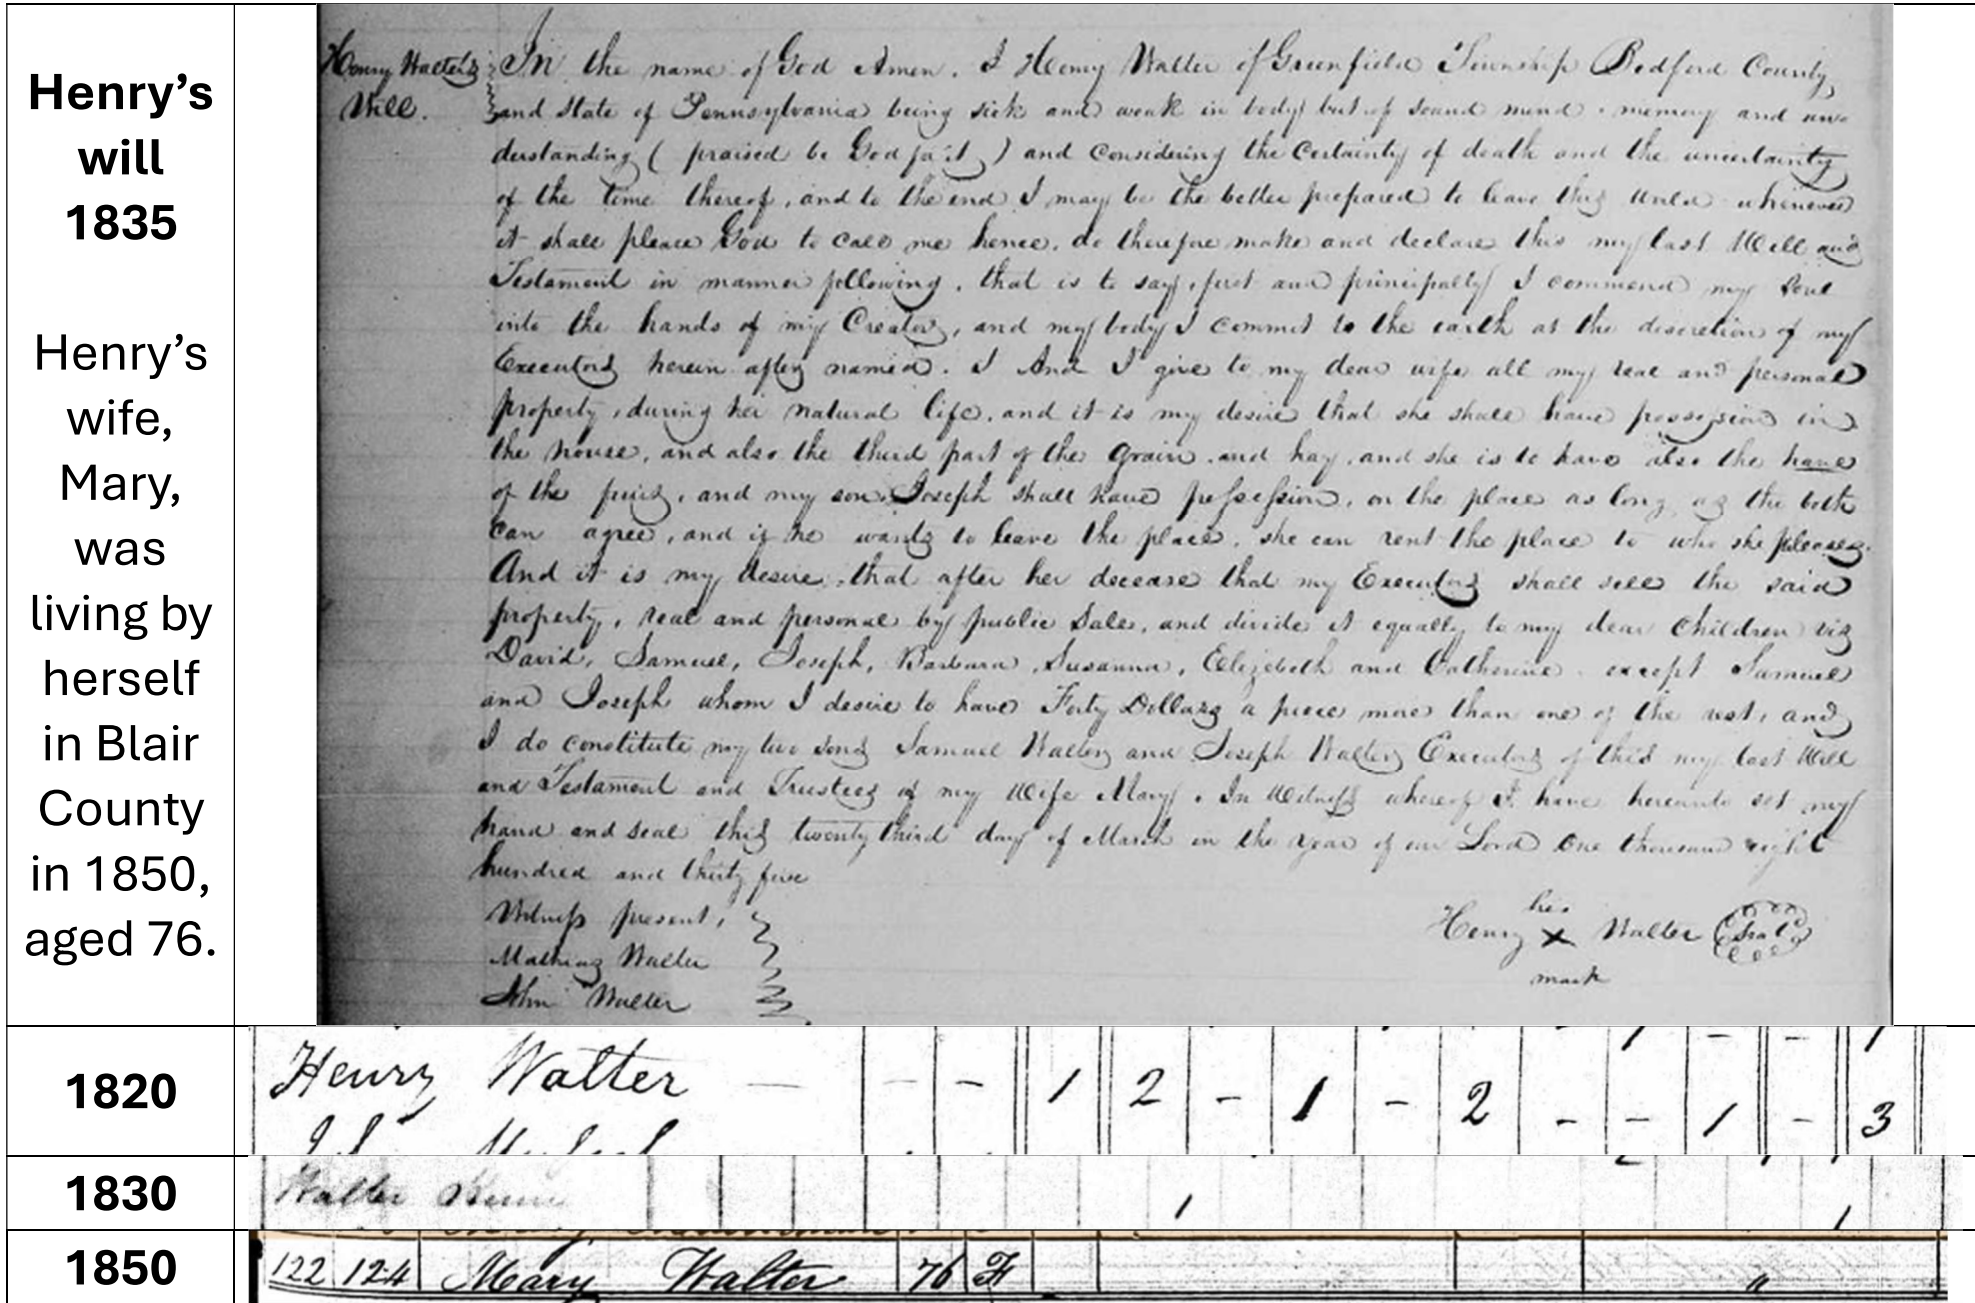 Henry's
will
1835
Henry's
wife,
Mary,
was
living by
herself
in Blair
County
in 1850,
aged 76.
Henry Walters
Will.
In the name of God Amen. I Henry Walter of Greenfield Township Bedford County,
and State of Pennsylvania being sick and weak in body but of sound mind memory and un-
derstanding ( praised be God for it ) and considering the certainty of death and the uncertainty
of the time thereof, and to the end I may be the better prepared to leave this world whenever
it shall please God to call me hence, do therefore make and declare this my last Will and
Testament in manner following, that is to say, first and principally I commend my Soul
into the hands of my Creator, and my body I commit to the earth at the discretion of my
Executors herein after named. I And I give to my dear wife all my real and personal
property, during her natural life, and it is my desire that she shall have possession in
the house, and also the third part of the grain and hay, and she is to have also the
of the and my son Joseph shall have possession, on the place as long as the both
can agree, and if he wants to leave the place, she can rent the place to who she pleases.
And it is my desire, that after her decease that my Executors shall sell the said
property, real and personal by public Sale, and divide it equally to my dear Children viz
David, Samuel, Joseph, Barbara, Susanna, Elizebeth and Catherine except Samuel
and Joseph whom I desire to have Forty Dollars a piece more than one of the rest, and
I do constitute my two sons Samuel Walter and Joseph Walter Executors of this my last Will
and Testament and Trustees of my Wife Mary. In Witness whereof I have hereunto set my
hand and seal this twenty third day of March in the year of our Lord One thousand eight
hundred and thirty five
Witness present,
Mathias Walter
John Walter
his
Henry X Walter Seal
mark
1820
Henry Walter — - - 1 2 - 1 - 2 - - 1 - 3
1830
Walter 1 1
1850
122 124 Mary Walter 76 F "